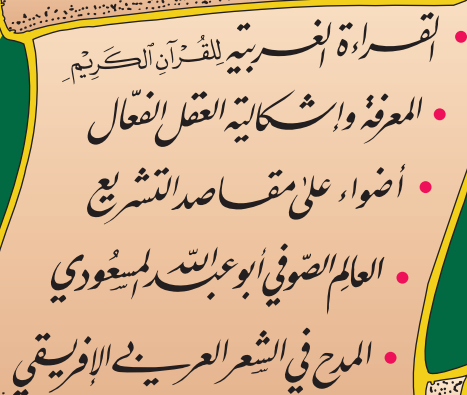 القراءة الغربية للقُرْآن الكَرِيْم
المعرفة وإشكالية العقل الفعّال
أضواء على مقاصد التشريع
العالم الصّوفي أبو عبد الله المسعُودي
المدح في الشعر العربي الإفريقي